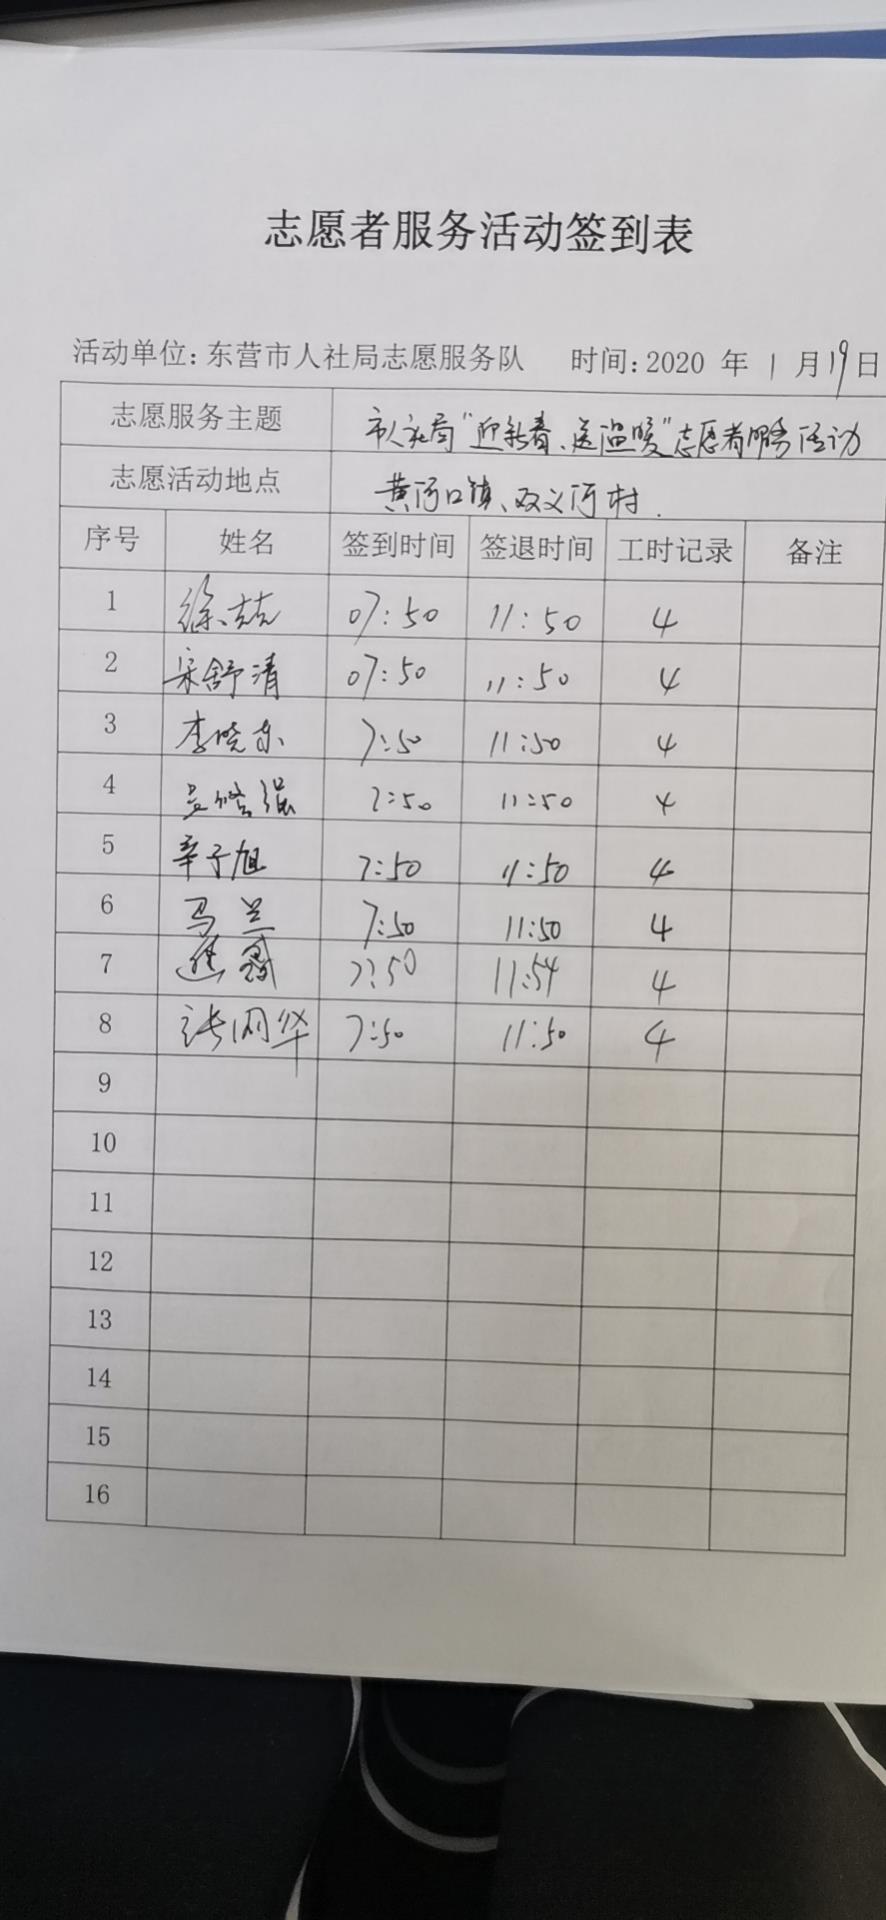 志愿者服务活动签到表
活动单位: 东营市人社局志愿服务队 时间: 2020 年 1 月 19 日
志愿服务主题 市人社局"迎新春、送温暖"志愿者服务活动
志愿活动地点 黄河口镇、双义河村.
序号 姓名 签到时间 签退时间 工时记录 备注
1 徐喆 07:50 11:50 4
2 宋舒清 07:50 11:50 4
3 李晓东 7:50 11:50 4
4 7:50 11:50 4
5 辛子旭 7:50 11:50 4
6 马兰 7:50 11:50 4
7 7:50 11:54 4
8 7:50 11:50 4
9
10
11
12
13
14
15
16